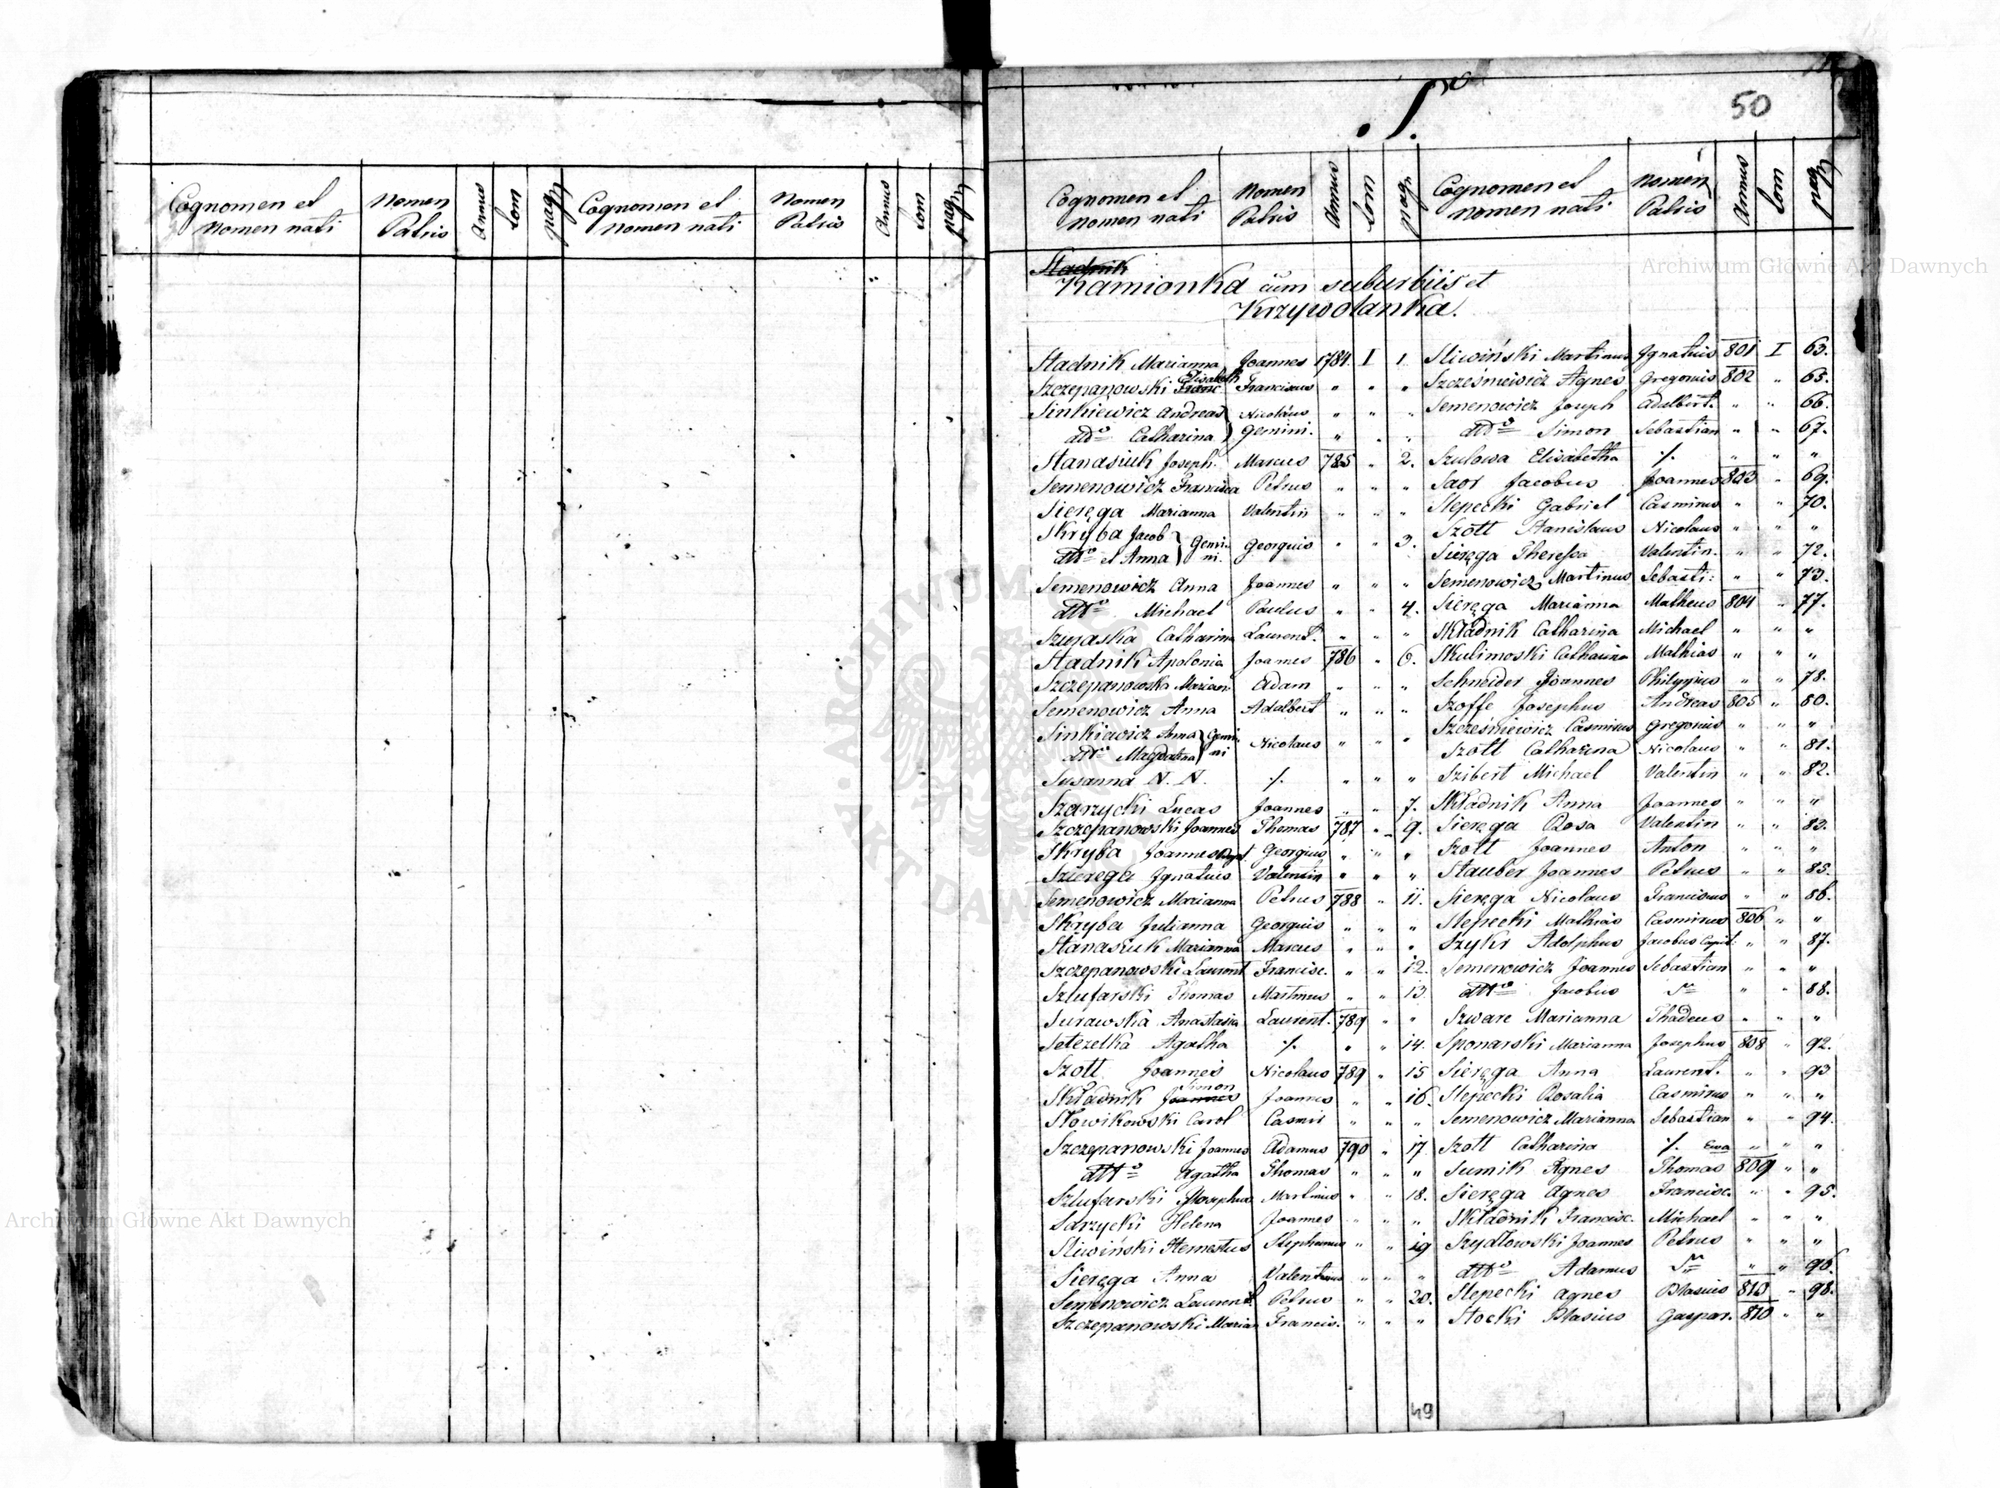 Cognomen et nomen nati
Nomen Patris
Annus
tom
pag.
Cognomen et nomen nati
Nomen Patris
Annus
tom
pag.
50
S.
Cognomen et nomen nati
Nomen Patris
Annus
tom
pag.
Cognomen et nomen nati
Nomen Patris
Annus
tom
pag.
Stadnik
Kamionka cum suburbiis et
Krzywolanka.
Stadnik Marianna Joannes 1784 I 1.
Szczepanowski Franc Elisabeth Franciscus " " "
Sinkiewicz Andreas Nicolaus " " "
dtto Catharina Gemini. " " "
Stanasiuk Joseph Marcus 785 " 2.
Semenowicz Francisca Petrus " " "
Sieręga Marianna Valentin " " "
Skryba Jacob
dtto et Anna Gemini. Georgius " " 3.
Semenowicz Anna Joannes " " "
dtto Michael Paulus " " 4.
Catharina Laurent. " " "
Stadnik Apolonia Joannes 786 " 6.
Szczepanowska Mariann Adam " " "
Semenowicz Anna Adalbert " " "
Sinkiewicz Anna
dtto Magdalena Gemini Nicolaus " " "
Susanna N. N. ./. " " "
Szarzycki Lucas Joannes " " 7.
Szczepanowski Joannes Thomas 787 " 9.
Skryba Joannes Bapt. Georgius " " "
Szieręga Ignatius Valentin " " "
Semenowicz Marianna Petrus 788 " 11.
Skryba Julianna Georgius " " "
Stanasiuk Marianna Marcus " " "
Szczepanowski Laurent Francisc. " " 12.
Szlufarski Thomas Martinus " " 13
Surawska Anastasia Laurent. 789 " "
Agatha ./. " " 14.
Szott Joannes Nicolaus 789 " 15
Składnik Joannes Simon Joannes " " 16.
Słowikowski Carol Casmir " " "
Szczepanowski Joannes Adamus 790 " 17
dtto Agatha Thomas " " "
Szlufarski Josephus Martinus " " 18.
Sarzycki Helena Joannes " " "
Sliwiński Stephanus " " 19
Sieręga Anna Valentinus " " "
Semenowicz Laurent Petrus " " 20.
Szczepanowski Marian Francis. " " "
49
Sliwiński Martinus Ignatius 801 I 63.
Agnes Gregorius 802 " 65.
Semenowicz Joseph Adalbert. " " 66.
dtto Simon Sebastian " " 67.
Szulowa Elisabetha ./. " " "
Saor Jacobus Joannes 803 " 69.
Slepecki Gabriel Casmirus " " 70.
Szott Stanislaus Nicolaus " " "
Sieręga Theresia Valentin. " " 72.
Semenowicz Martinus Sebasti: " " 73.
Sieręga Marianna Matheus 804 " 77.
Składnik Catharina Michael " " "
Skulimoski Catharina Mathias " " "
Schneider Joannes Philippus " " 78.
Szoffe Josephus Andreas 805 " 80.
Szcześniewicz Casmirus Gregorius " " "
Szott Catharina Nicolaus " " 81.
Szibert Michael Valentin " " 82.
Składnik Anna Joannes " " "
Sieręga Rosa Valentin " " 83.
Szott Joannes Anton " " "
Stauber Joannes Petrus " " 85.
Sieręga Nicolaus Franciscus " " 86.
Slepecki Mathias Casmirus 806 " "
Szykr Adolphus Jacobus Capit. " " 87.
Semenowicz Joannes Sebastian " " "
dtto Jacobus " " 88.
Szwarc Marianna Thadeus " " "
Sponarski Marianna Josephus 808 " 92.
Sieręga Anna Laurent. " " 93
Slepecki Rosalia Casmirus " " "
Semenowicz Marianna Sebastian " " 94.
Szott Catharina ./. Ewa " " "
Sumik Agnes Thomas 809 " "
Sieręga Agnes Francisc. " " 95.
Składnik Francisc. Michael " " "
Szydłowski Joannes Petrus " " "
dtto Adamus " " 96.
Slepecki Agnes Blasius 810 " 98.
Stocki Blasius Gaspar. 810 " "
Archiwum Główne Akt Dawnych
Archiwum Główne Akt Dawnych
ARCHIWUM
AKT DAWNYCH